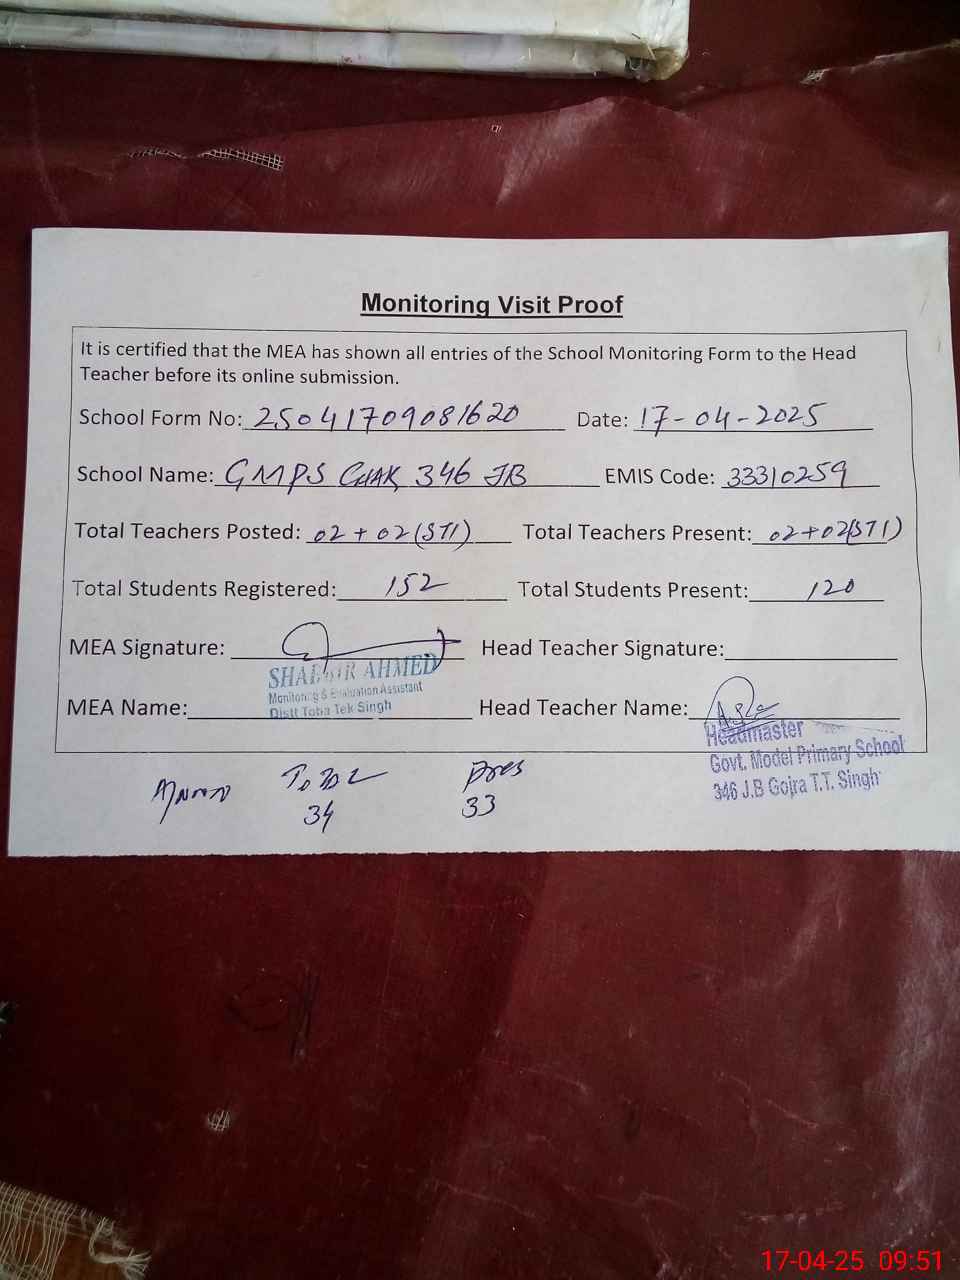 Monitoring Visit Proof
It is certified that the MEA has shown all entries of the School Monitoring Form to the Head
Teacher before its online submission.
School Form No: 25041709081620 Date: 17-04-2025
School Name: GMPS CHAK 346 JB EMIS Code: 33310259
Total Teachers Posted: 02 + 02(STI) Total Teachers Present: 02+02(STI)
Total Students Registered: 152 Total Students Present: 120
MEA Signature: Head Teacher Signature:
SHABBIR AHMED
Monitoring & Evaluation Assistant
Distt Toba Tek Singh
MEA Name: Head Teacher Name:
Headmaster
Govt. Model Primary School
346 J.B Gojra T.T. Singh
Pres
34 33
17-04-25 09:51